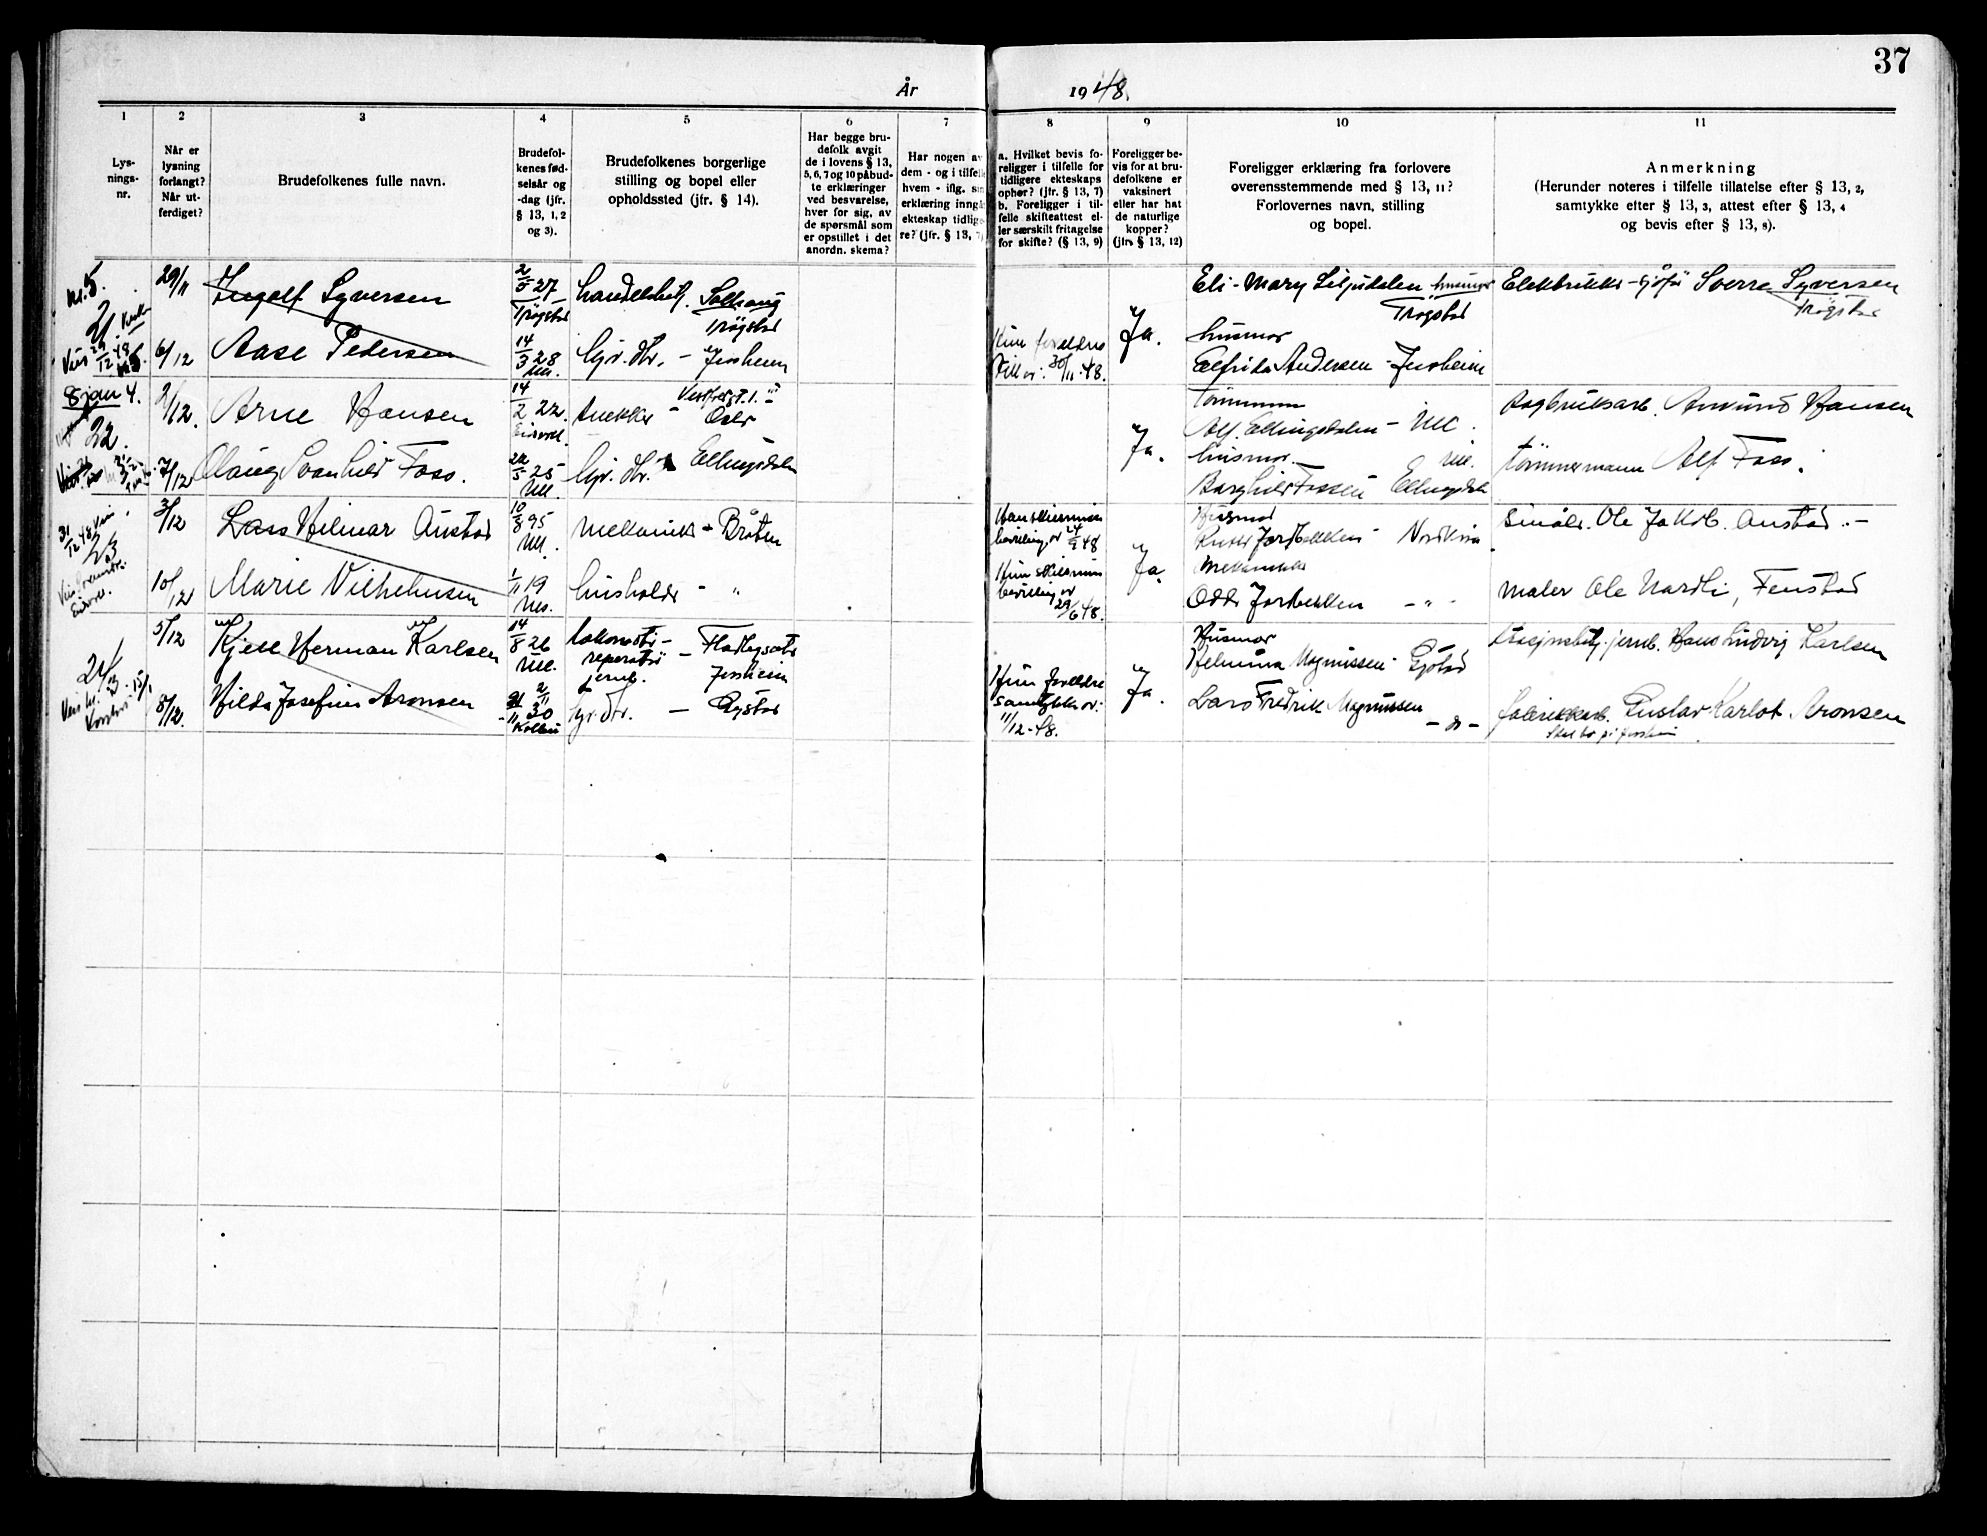 37
År 1948.
1 2 3 4 5 6 7 8 9 10 11
Lys-
nings-
nr.
Når er
lysning
forlangt?
Når ut-
ferdiget?
Brudefolkenes fulle navn.
Brudefol-
kenes fød-
selsår og
-dag (jfr.
§ 13, 1, 2
og 3).
Brudefolkenes borgerlige
stilling og bopel eller
opholdssted (jfr. § 14).
Har begge bru-
defolk avgit
de i lovens § 13,
5, 6, 7 og 10 påbud-
te erklæringer
ved besvarelse,
hver for sig, av
de spørsmål som
er opstillet i det
anordn. skema?
Har nogen av
dem - og i tilfelle
hvem - iflg. sin
erklæring inngå
ekteskap tidlige
re? (jfr. § 13, 7)
a. Hvilket bevis fo-
religger i tilfelle for
tidligere ekteskaps
ophør? (jfr. § 13, 7)
b. Foreligger i til-
felle skifteattest el-
ler særskilt fritagelse
for skifte? (§ 13, 9)
Foreligger be-
vis for at bru-
defolkene er
vaksinert
eller har hat
de naturlige
kopper?
(jfr. § 13, 12)
Foreligger erklæring fra forlovere
overensstemmende med § 13, 11?
Forlovernes navn, stilling
og bopel.
Anmerkning
(Herunder noteres i tilfelle tillatelse efter § 13, 2,
samtykke efter § 13, 3, attest efter § 13, 4
og bevis efter § 13, 8).
Nr. 5.
21
29/11
Ingolf Syversen
2/5 27
Trøgstad
handelsbetj. Solhaug
Trøgstad
Ja.
Eli-Mary Liljedalen husmor
Trøgstad
Elektriker - sjåfør Sverre Syversen
Trøgstad
6/12
Aase Pedersen
14/3 28
Ull.
hjv. dtr. - Jessheim
Hun foreldre
30/11-48.
husmor
Elfrida Andersen - Jessheim
8 jan 4.
22.
2/12.
Arne Hansen
14/2 22.
Eidsvoll.
snekker - Oslo
Ja.
Tømmerm
Alf. Ellingsdalen - Ull.
Sagbruksarb. Amund Hansen
7/12
Olaug Svanhild Foss.
22/5 25
Ull.
hjv. dtr. Ellingsdalen
husmor. Ull.
Borghild Fossen Ellingsdal
tømmermann Alf Foss.
31/12 48
23
3/12
Lars Hilmar Austad
10/8 95
Ull.
mekaniker - Bråten
bevilling av 24/2 48
Ja.
Husmor
Jordbekken Nordkisa
småbr. Ole Jakob Austad.
10/12
Marie Vilhelmsen
1/11 19
Nes.
husholder - "
Hun skilsmiss
bevilling av
29/6 48.
mekaniker
Odd Jordbekken - " -
maler Ole Nardli, Fenstad
24/13
5/12
Kjell Herman Karlsen
14/8 26
Ull.
lokomotiv-
reperatør
jernb.
- Fladbyseter
Jessheim
Ja.
Husmor
Helmina Magnussen - Gystad
stasjonsbetj. jernb. Hans Ludvig Karlsen
8/12.
Hilda Josefine Aronsen
2/11 30
hjv. dtr. - Gystad
Hun foreldre
samtykke av:
11/12-48.
Lars Fredrik Magnussen
- do -
fabrikkarb. Gustav Karlot Aronsen
Skal bo på Jessheim